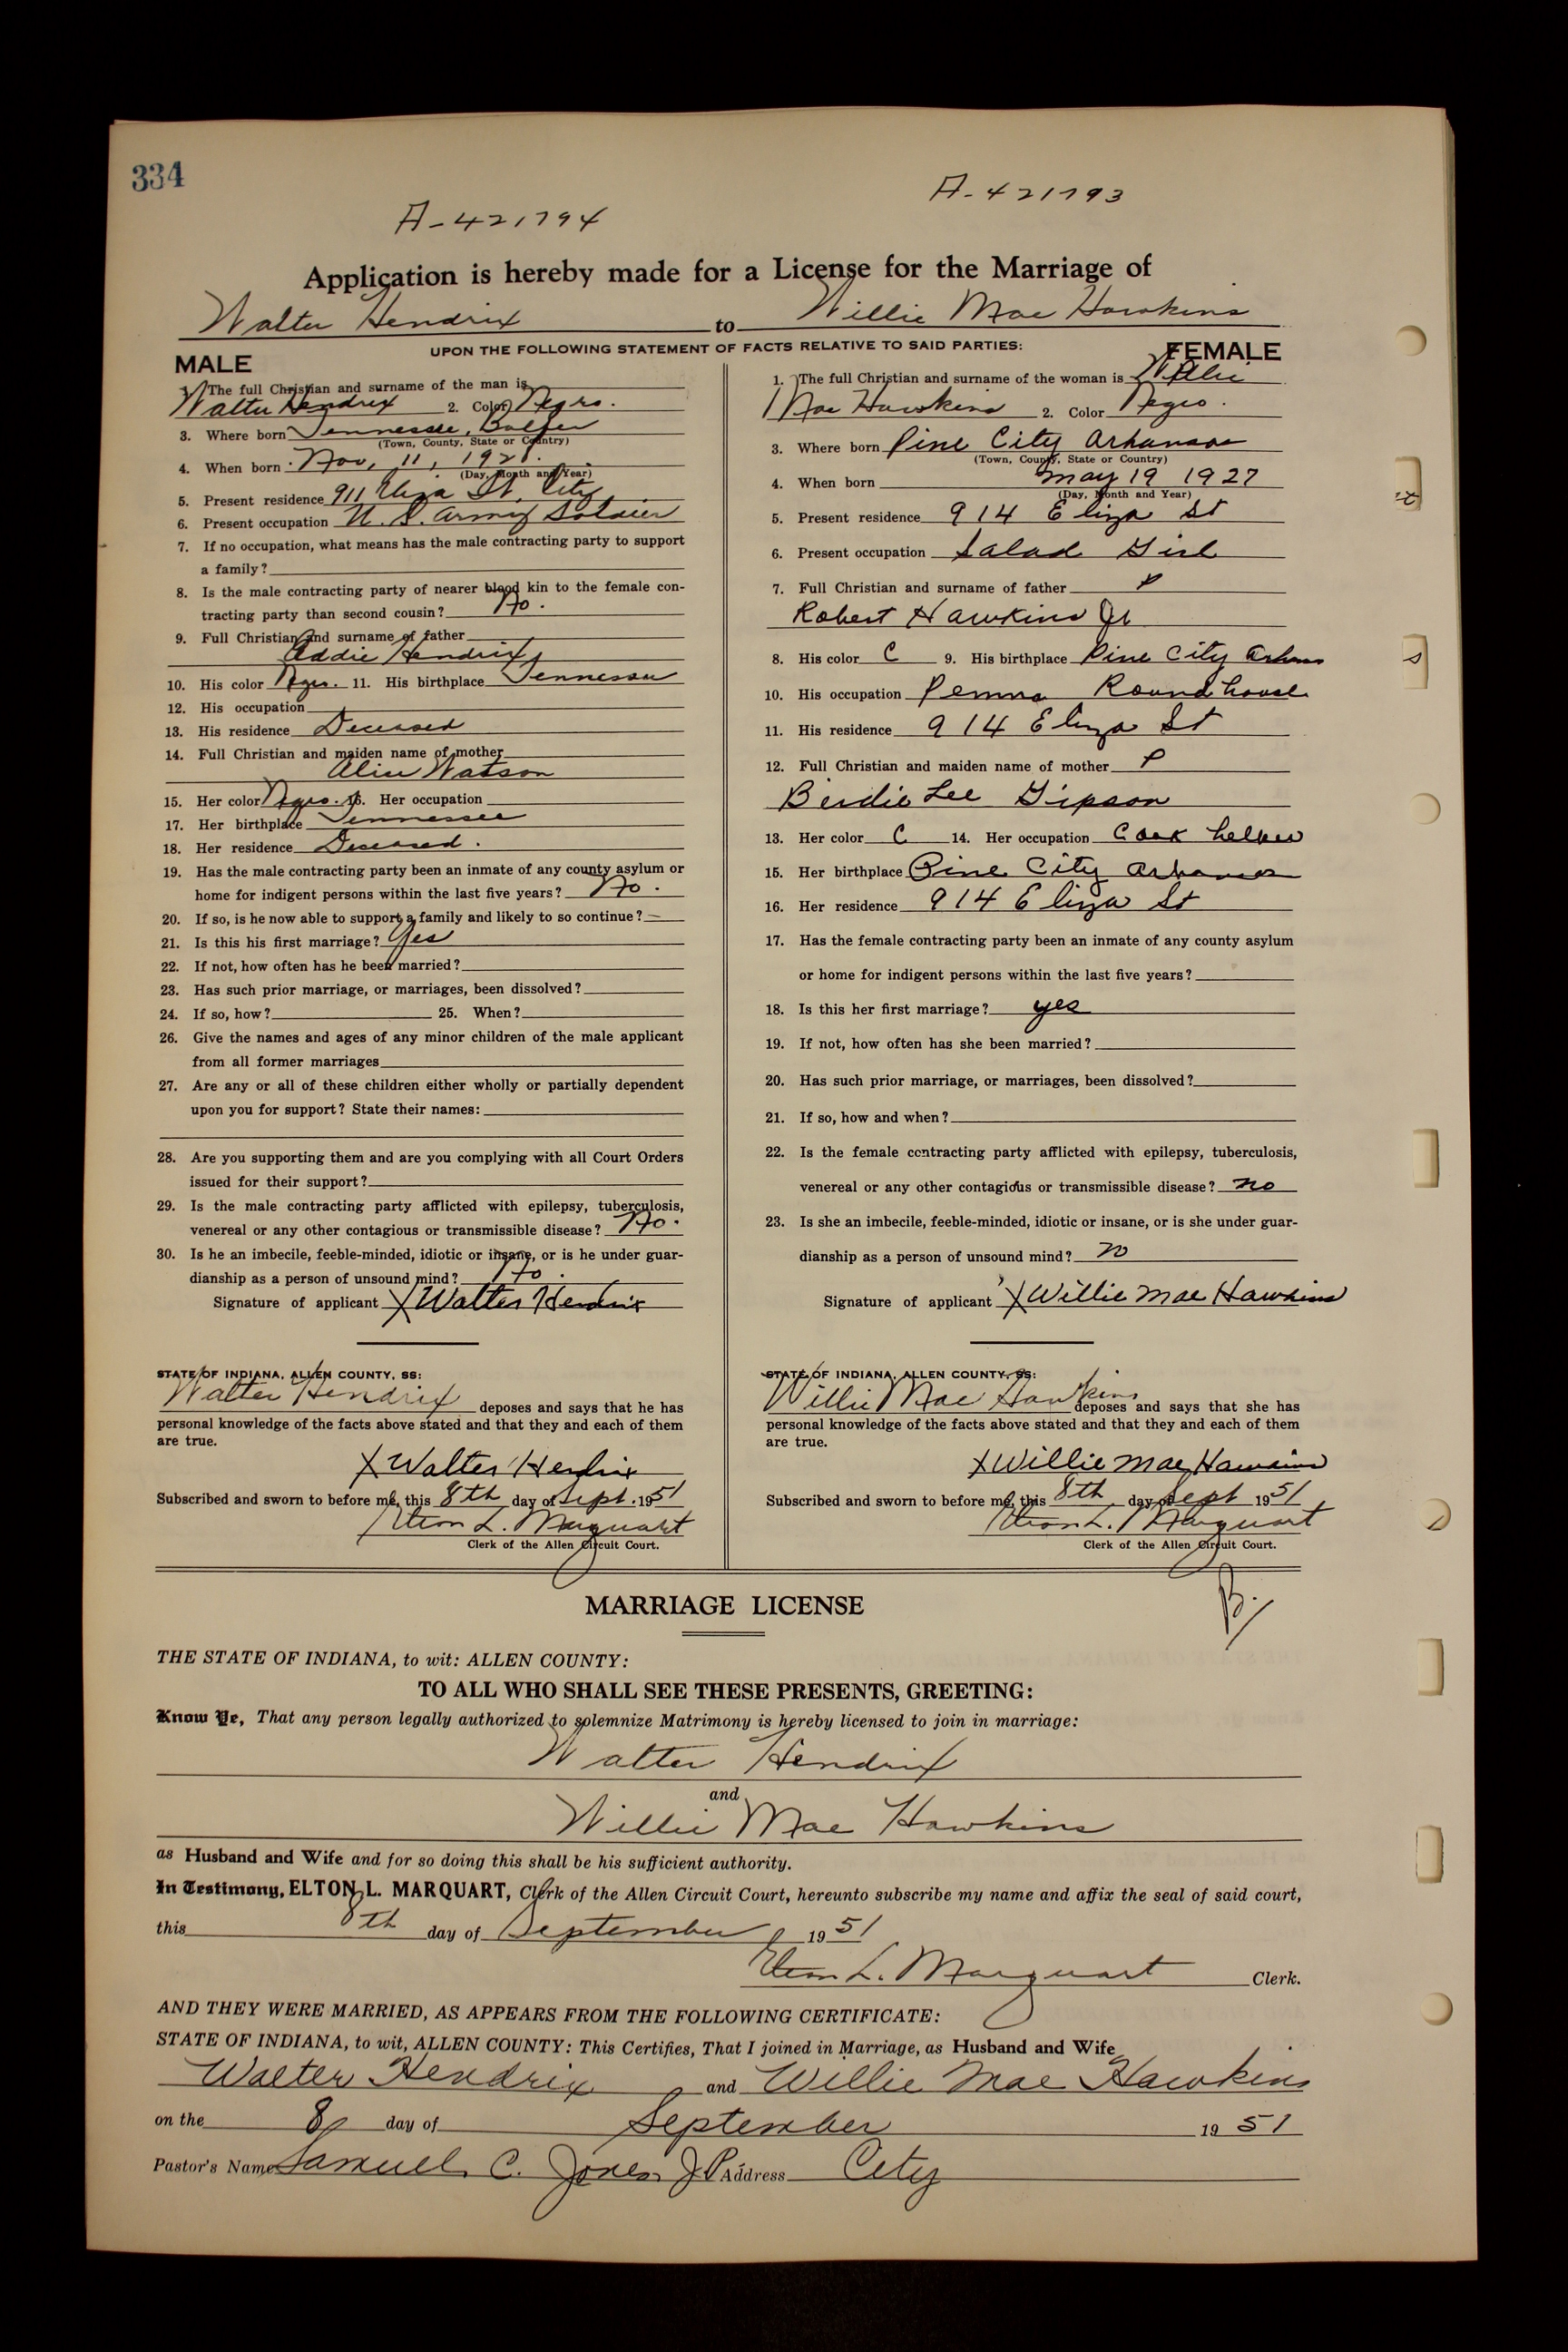 334
A-421793
A-421794
Application is hereby made for a License for the Marriage of
Walter Hendrix to Willie Mae Hawkins
UPON THE FOLLOWING STATEMENT OF FACTS RELATIVE TO SAID PARTIES:
MALE
1. The full Christian and surname of the man is
Walter Hendrix 2. Color Negro.
3. Where born Tennessee,
(Town, County, State or Country)
4. When born Nov, 11, 1928.
(Day, Month and Year)
5. Present residence 911 Eliza St, City
6. Present occupation U. S. Army Soldier
7. If no occupation, what means has the male contracting party to support
a family?
8. Is the male contracting party of nearer blood kin to the female con-
tracting party than second cousin? No.
9. Full Christian and surname of father
Addie Hendrix
10. His color Negro. 11. His birthplace Tennessee
12. His occupation
13. His residence Deceased
14. Full Christian and maiden name of mother
Alice Watson
15. Her color Negro. 16. Her occupation
17. Her birthplace Tennessee
18. Her residence Deceased.
19. Has the male contracting party been an inmate of any county asylum or
home for indigent persons within the last five years? No.
20. If so, is he now able to support a family and likely to so continue? —
21. Is this his first marriage? Yes
22. If not, how often has he been married?
23. Has such prior marriage, or marriages, been dissolved?
24. If so, how? 25. When?
26. Give the names and ages of any minor children of the male applicant
from all former marriages
27. Are any or all of these children either wholly or partially dependent
upon you for support? State their names:
28. Are you supporting them and are you complying with all Court Orders
issued for their support?
29. Is the male contracting party afflicted with epilepsy, tuberculosis,
venereal or any other contagious or transmissible disease? No.
30. Is he an imbecile, feeble-minded, idiotic or insane, or is he under guar-
dianship as a person of unsound mind? No.
Signature of applicant X Walter Hendrix
STATE OF INDIANA, ALLEN COUNTY, SS:
Walter Hendrix deposes and says that he has
personal knowledge of the facts above stated and that they and each of them
are true.
X Walter Hendrix
Subscribed and sworn to before me, this 8th day of Sept. 1951
Elton L. Marquart
Clerk of the Allen Circuit Court.
FEMALE
1. The full Christian and surname of the woman is Willie
Mae Hawkins 2. Color Negro.
3. Where born Pine City Arkansas
(Town, County, State or Country)
4. When born May 19 1927
(Day, Month and Year)
5. Present residence 914 Eliza St
6. Present occupation Salad Girl
7. Full Christian and surname of father
Robert Hawkins Jr
8. His color C 9. His birthplace Pine City Arkans
10. His occupation Penna Roundhouse
11. His residence 914 Eliza St
12. Full Christian and maiden name of mother
Birdie Lee Gipson
13. Her color C 14. Her occupation Cook helper
15. Her birthplace Pine City Arkansas
16. Her residence 914 Eliza St
17. Has the female contracting party been an inmate of any county asylum
or home for indigent persons within the last five years?
18. Is this her first marriage? yes
19. If not, how often has she been married?
20. Has such prior marriage, or marriages, been dissolved?
21. If so, how and when?
22. Is the female contracting party afflicted with epilepsy, tuberculosis,
venereal or any other contagious or transmissible disease? no
23. Is she an imbecile, feeble-minded, idiotic or insane, or is she under guar-
dianship as a person of unsound mind? no
Signature of applicant X Willie Mae Hawkins
STATE OF INDIANA, ALLEN COUNTY, SS:
Willie Mae Hawkins deposes and says that she has
personal knowledge of the facts above stated and that they and each of them
are true.
X Willie Mae Hawkins
Subscribed and sworn to before me, this 8th day of Sept 1951
Elton L. Marquart
Clerk of the Allen Circuit Court.
B.
MARRIAGE LICENSE
THE STATE OF INDIANA, to wit: ALLEN COUNTY:
TO ALL WHO SHALL SEE THESE PRESENTS, GREETING:
Know Ye, That any person legally authorized to solemnize Matrimony is hereby licensed to join in marriage:
Walter Hendrix
and
Willie Mae Hawkins
as Husband and Wife and for so doing this shall be his sufficient authority.
In Testimony, ELTON L. MARQUART, Clerk of the Allen Circuit Court, hereunto subscribe my name and affix the seal of said court,
this 8th day of September 1951
Elton L. Marquart Clerk.
AND THEY WERE MARRIED, AS APPEARS FROM THE FOLLOWING CERTIFICATE:
STATE OF INDIANA, to wit, ALLEN COUNTY: This Certifies, That I joined in Marriage, as Husband and Wife
Walter Hendrix and Willie Mae Hawkins
on the 8 day of September 1951
Pastor's Name Samuel C. Jones J.P. Address City